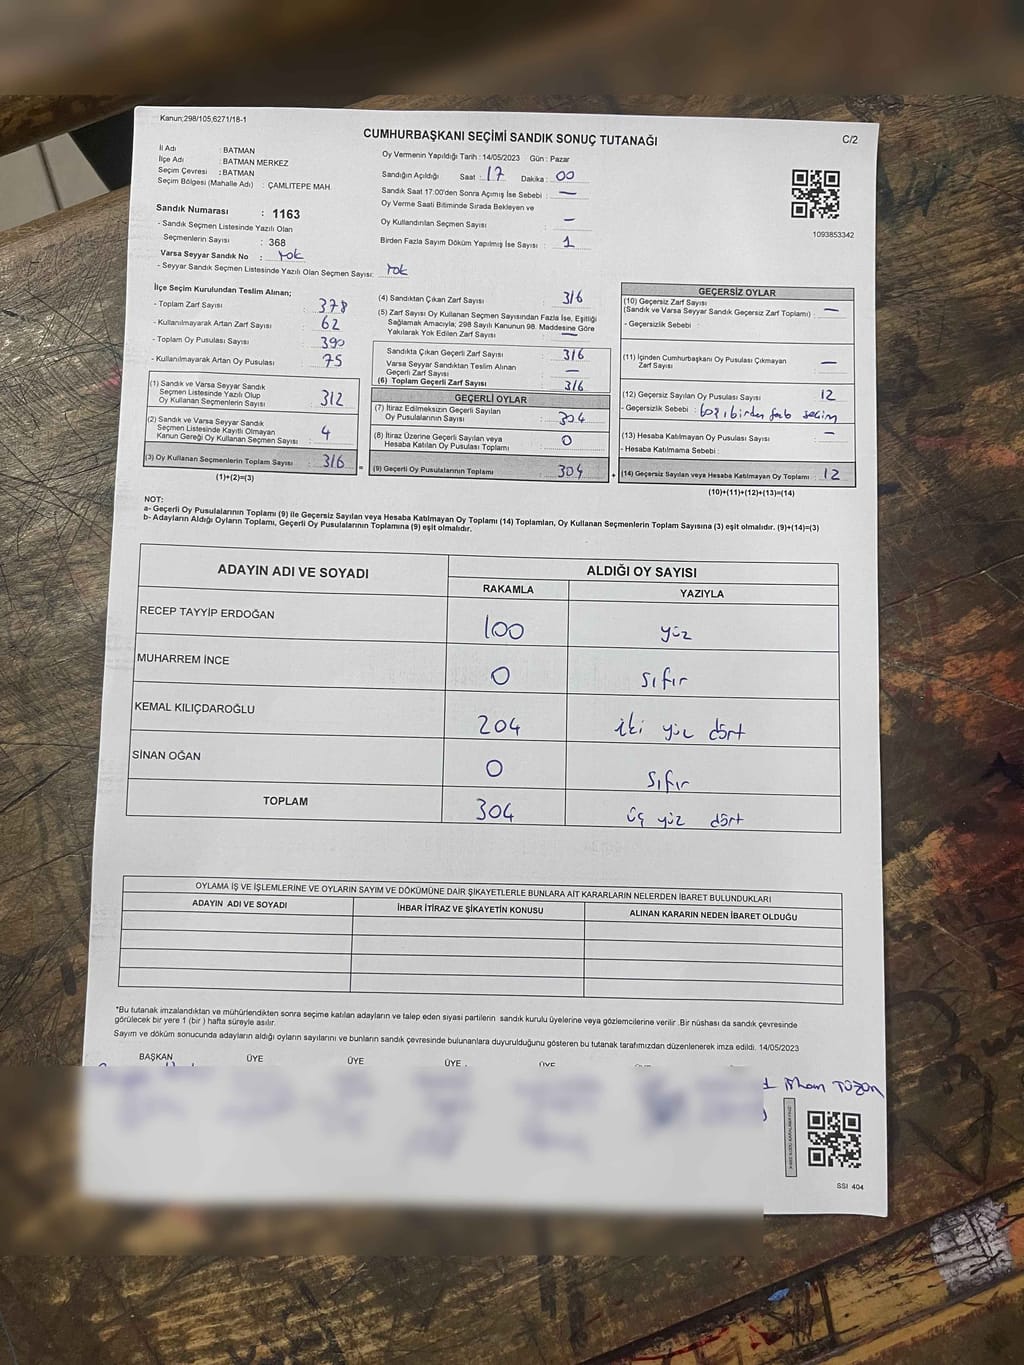 Kanun;298/105,6271/18-1
CUMHURBAŞKANI SEÇİMİ SANDIK SONUÇ TUTANAĞI
C/2
İl Adı : BATMAN
İlçe Adı : BATMAN MERKEZ
Seçim Çevresi : BATMAN
Seçim Bölgesi (Mahalle Adı) : ÇAMLITEPE MAH.
Oy Vermenin Yapıldığı Tarih : 14/05/2023 Gün : Pazar
Sandığın Açıldığı Saat : 17 Dakika : 00
Sandık Saat 17:00'den Sonra Açımış İse Sebebi : —
Oy Verme Saati Bitiminde Sırada Bekleyen ve
Oy Kullandırılan Seçmen Sayısı : —
Birden Fazla Sayım Döküm Yapılmış İse Sayısı : 1
1093853342
Sandık Numarası : 1163
- Sandık Seçmen Listesinde Yazılı Olan
Seçmenlerin Sayısı : 368
Varsa Seyyar Sandık No : Yok
- Seyyar Sandık Seçmen Listesinde Yazılı Olan Seçmen Sayısı: Yok
İlçe Seçim Kurulundan Teslim Alınan;
- Toplam Zarf Sayısı : 378
- Kullanılmayarak Artan Zarf Sayısı : 62
- Toplam Oy Pusulası Sayısı : 390
- Kullanılmayarak Artan Oy Pusulası : 75
(1) Sandık ve Varsa Seyyar Sandık
Seçmen Listesinde Yazılı Olup
Oy Kullanan Seçmenlerin Sayısı : 312
(2) Sandık ve Varsa Seyyar Sandık
Seçmen Listesinde Kayıtlı Olmayan
Kanun Gereği Oy Kullanan Seçmen Sayısı : 4
(3) Oy Kullanan Seçmenlerin Toplam Sayısı : 316
(1)+(2)=(3)
(4) Sandıktan Çıkan Zarf Sayısı : 316
(5) Zarf Sayısı Oy Kullanan Seçmen Sayısından Fazla İse, Eşitliği
Sağlamak Amacıyla; 298 Sayılı Kanunun 98. Maddesine Göre
Yakılarak Yok Edilen Zarf Sayısı : —
Sandıkta Çıkan Geçerli Zarf Sayısı : 316
Varsa Seyyar Sandıktan Teslim Alınan
Geçerli Zarf Sayısı : —
(6) Toplam Geçerli Zarf Sayısı : 316
GEÇERLİ OYLAR
(7) İtiraz Edilmeksizin Geçerli Sayılan
Oy Pusulalarının Sayısı : 304
(8) İtiraz Üzerine Geçerli Sayılan veya
Hesaba Katılan Oy Pusulası Toplamı : 0
(9) Geçerli Oy Pusulalarının Toplamı : 304
GEÇERSİZ OYLAR
(10) Geçersiz Zarf Sayısı
(Sandık ve Varsa Seyyar Sandık Geçersiz Zarf Toplamı) : —
- Geçersizlik Sebebi :
(11) İçinden Cumhurbaşkanı Oy Pusulası Çıkmayan
Zarf Sayısı : —
(12) Geçersiz Sayılan Oy Pusulası Sayısı : 12
- Geçersizlik Sebebi :
(13) Hesaba Katılmayan Oy Pusulası Sayısı : —
- Hesaba Katılmama Sebebi :
(14) Geçersiz Sayılan veya Hesaba Katılmayan Oy Toplamı : 12
(10)+(11)+(12)+(13)=(14)
NOT:
a- Geçerli Oy Pusulalarının Toplamı (9) ile Geçersiz Sayılan veya Hesaba Katılmayan Oy Toplamı (14) Toplamları, Oy Kullanan Seçmenlerin Toplam Sayısına (3) eşit olmalıdır. (9)+(14)=(3)
b- Adayların Aldığı Oyların Toplamı, Geçerli Oy Pusulalarının Toplamına (9) eşit olmalıdır.
ADAYIN ADI VE SOYADI
ALDIĞI OY SAYISI
RAKAMLA YAZIYLA
RECEP TAYYİP ERDOĞAN 100 yüz
MUHARREM İNCE 0 sıfır
KEMAL KILIÇDAROĞLU 204 iki yüz dört
SİNAN OĞAN 0 sıfır
TOPLAM 304 üç yüz dört
OYLAMA İŞ VE İŞLEMLERİNE VE OYLARIN SAYIM VE DÖKÜMÜNE DAİR ŞİKAYETLERLE BUNLARA AİT KARARLARIN NELERDEN İBARET BULUNDUKLARI
ADAYIN ADI VE SOYADI İHBAR İTİRAZ VE ŞİKAYETİN KONUSU ALINAN KARARIN NEDEN İBARET OLDUĞU
*Bu tutanak imzalandıktan ve mühürlendikten sonra seçime katılan adayların ve talep eden siyasi partilerin sandık kurulu üyelerine veya gözlemcilerine verilir .Bir nüshası da sandık çevresinde
görülecek bir yere 1 (bir ) hafta süreyle asılır.
Sayım ve döküm sonucunda adayların aldığı oyların sayılarını ve bunların sandık çevresinde bulunanlara duyurulduğunu gösteren bu tutanak tarafımızdan düzenlenerek imza edildi. 14/05/2023
BAŞKAN ÜYE ÜYE ÜYE ÜYE
SSI 404